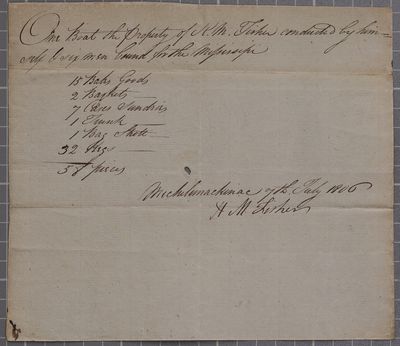 One Boat the Property of H. M. Fisher conducted by him=
self & six men bound for the Missisipi
15 Bales Goods
2 Baskets
7 Cases Sundries
1 Trunk
1 Bag Shott
32 Kegs
58 pieces
Michilimackinac 7th July 1806
H M Fisher